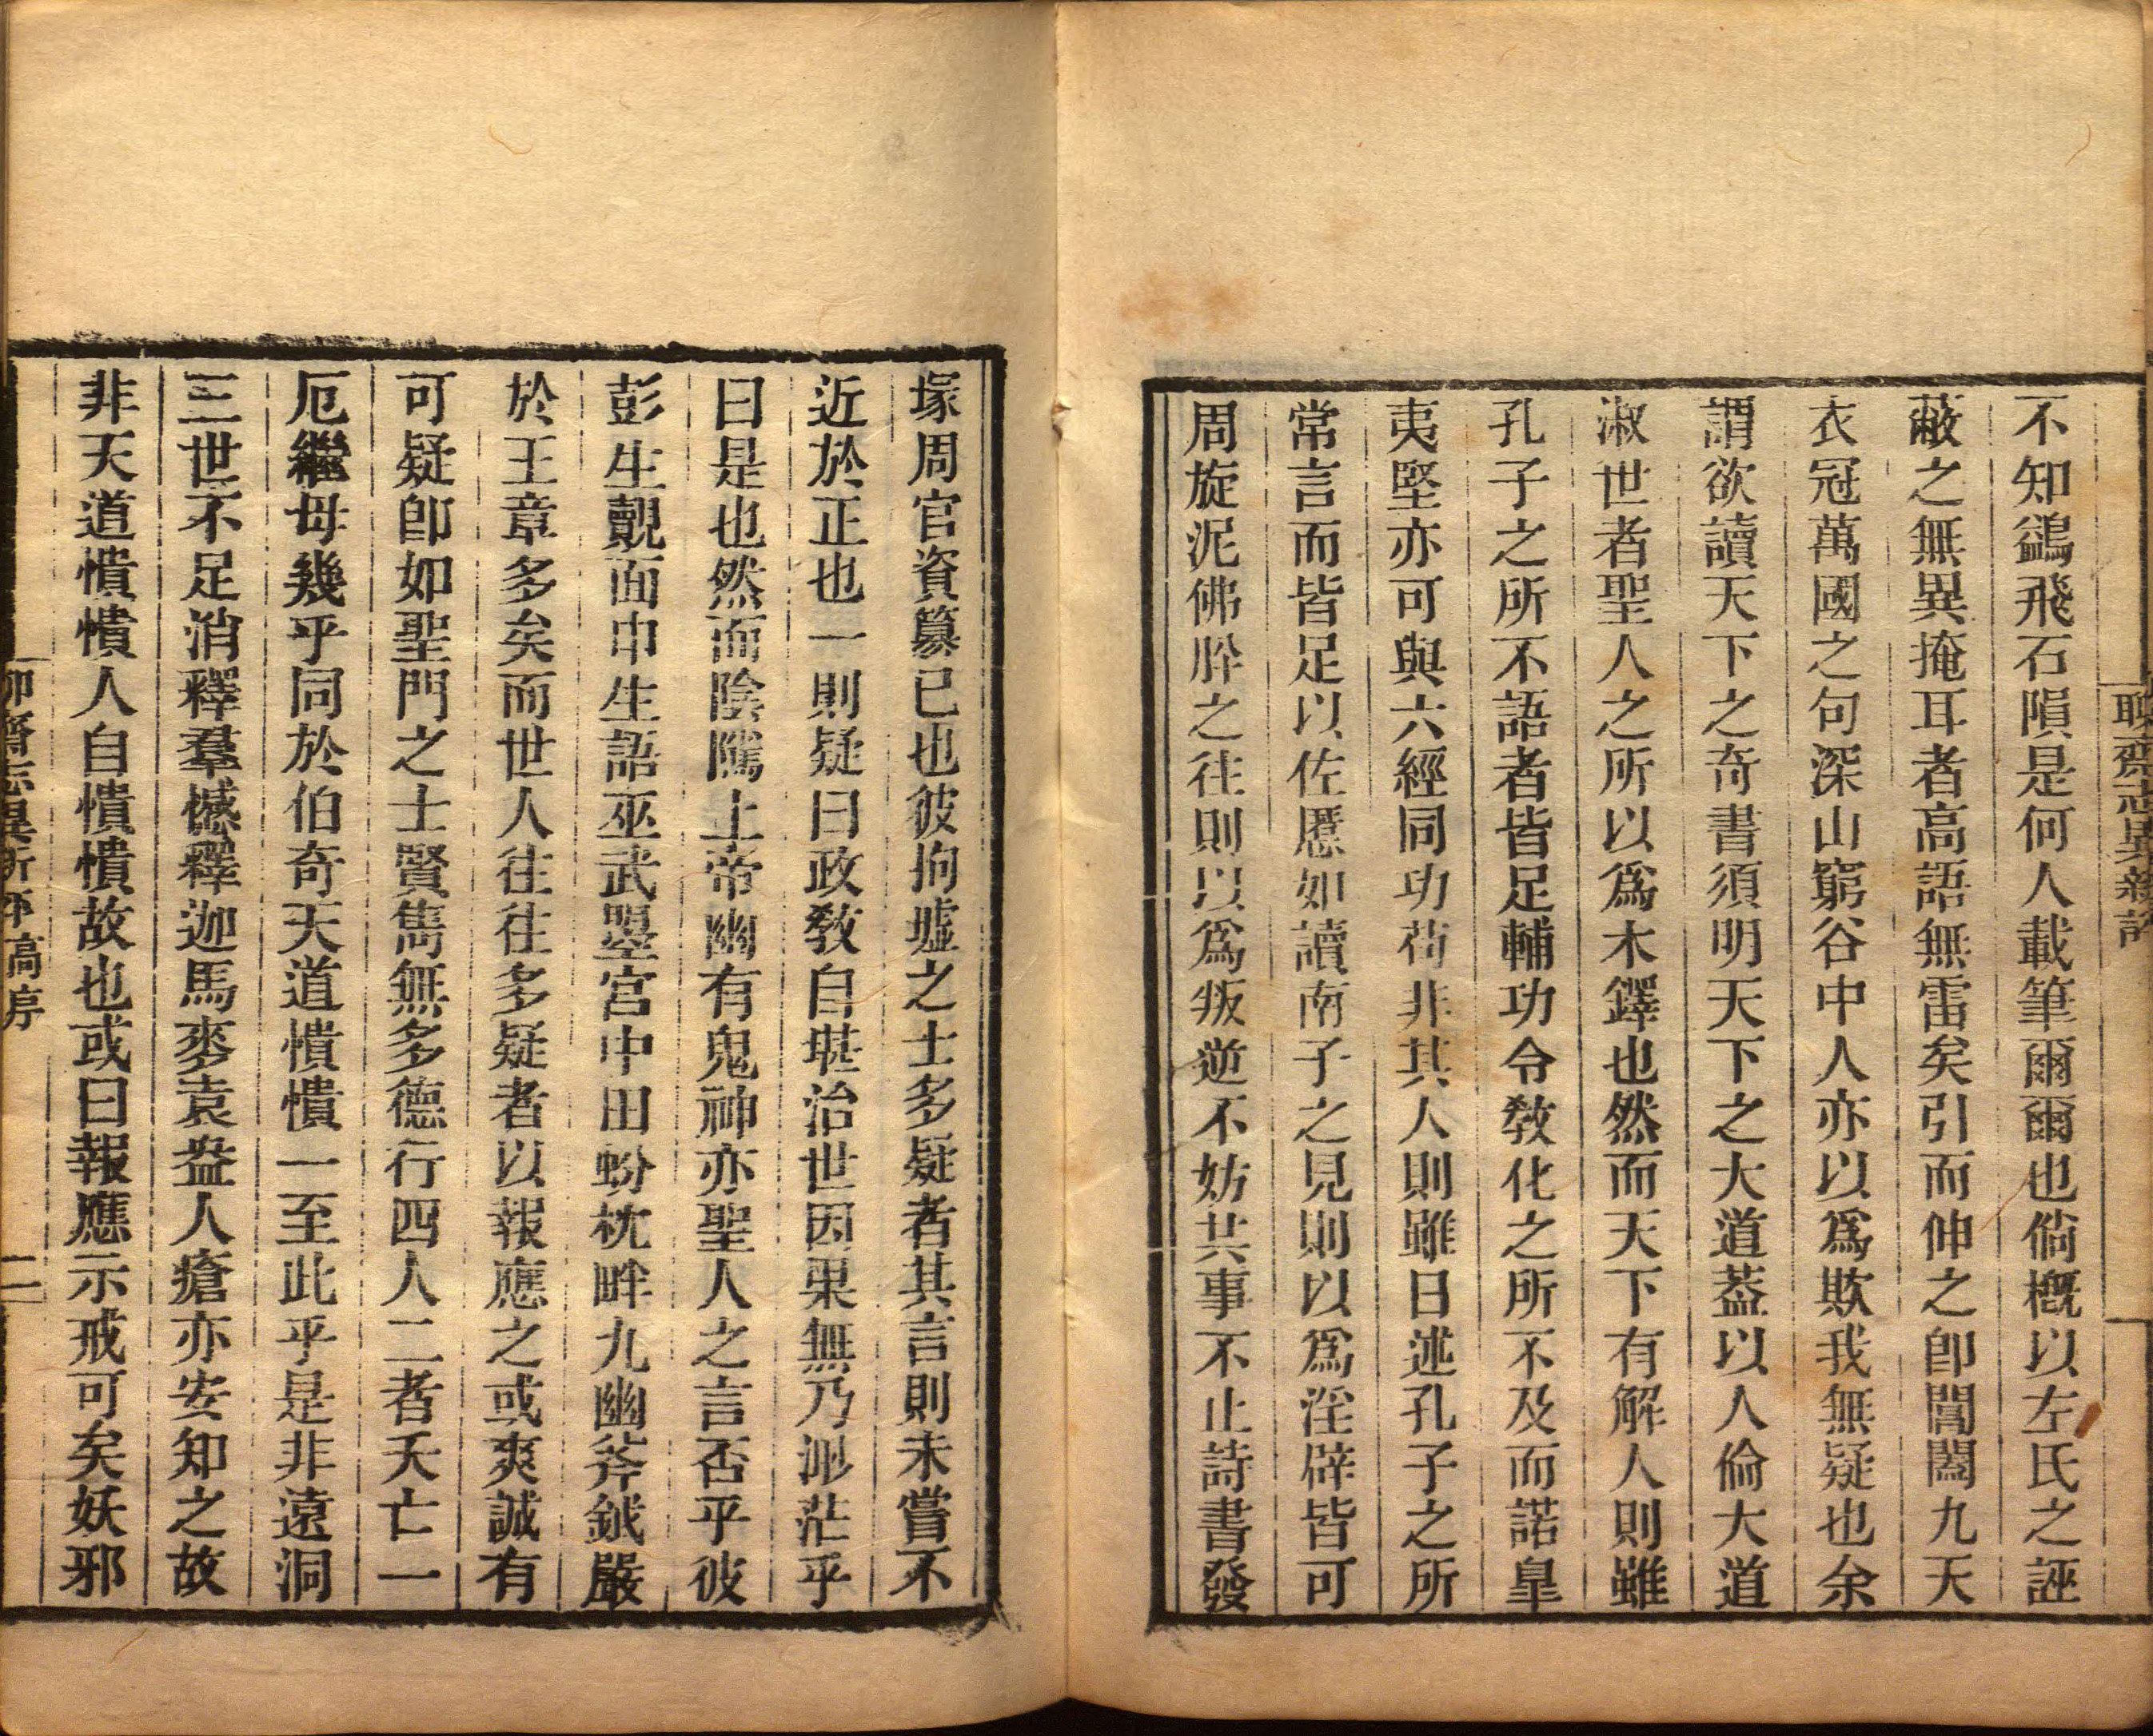 聊齋志異新評
不知鷁飛石隕是何人載筆爾爾也倘概以左氏之誣
蔽之無異掩耳者高語無雷矣引而伸之卽閶闔九天
衣冠萬國之句深山窮谷中人亦以爲欺我無疑也余
謂欲讀天下之奇書須明天下之大道葢以人倫大道
淑世者聖人之所以爲木鐸也然而天下有解人則雖
孔子之所不語者皆足輔功令敎化之所不及而諾臯
夷堅亦可與六經同功苟非其人則雖日述孔子之所
常言而皆足以佐慝如讀南子之見則以爲淫辟皆可
周旋泥佛肸之往則以爲叛逆不妨共事不止詩書發
塚周官資篡已也彼拘墟之士多疑者其言則未嘗不
近於正也一則疑曰政敎自堪治世因果無乃渺茫乎
曰是也然而陰隲上帝幽有鬼神亦聖人之言否乎彼
彭生覿面申生語巫武曌宮中田蚡枕畔九幽斧鉞嚴
於王章多矣而世人往往多疑者以報應之或爽誠有
可疑卽如聖門之士賢雋無多德行四人二者夭亡一
厄繼母幾乎同於伯奇天道憒憒一至此乎是非遠洞
三世不足消釋羣憾釋迦馬麥袁盎人瘡亦安知之故
非天道憒憒人自憒憒故也或曰報應示戒可矣妖邪
聊齋志異新評 高序 二